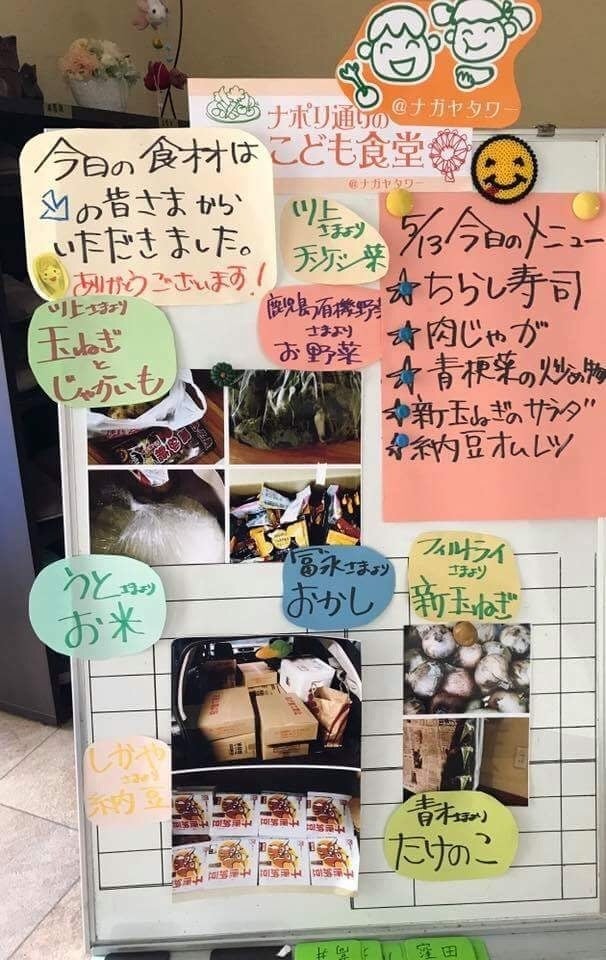 @ナガヤタワー
ナポリ通りの
こども食堂
@ナガヤタワー
今日の食材は
の皆さまから
いただきました。
ありがとうございます!
川上
さまより
チンゲン菜
5/13 今日のメニュー
ちらし寿司
肉じゃが
青梗菜の炒め物
新玉ねぎのサラダ
納豆オムレツ
川上さまより
玉ねぎ
と
じゃがいも
鹿児島有機野
さまより
お野菜
うとさまより
お米
冨永さまより
おかし
フィルトライ
さまより
新玉ねぎ
しかや
さまより
納豆
青木さまより
たけのこ
窪田